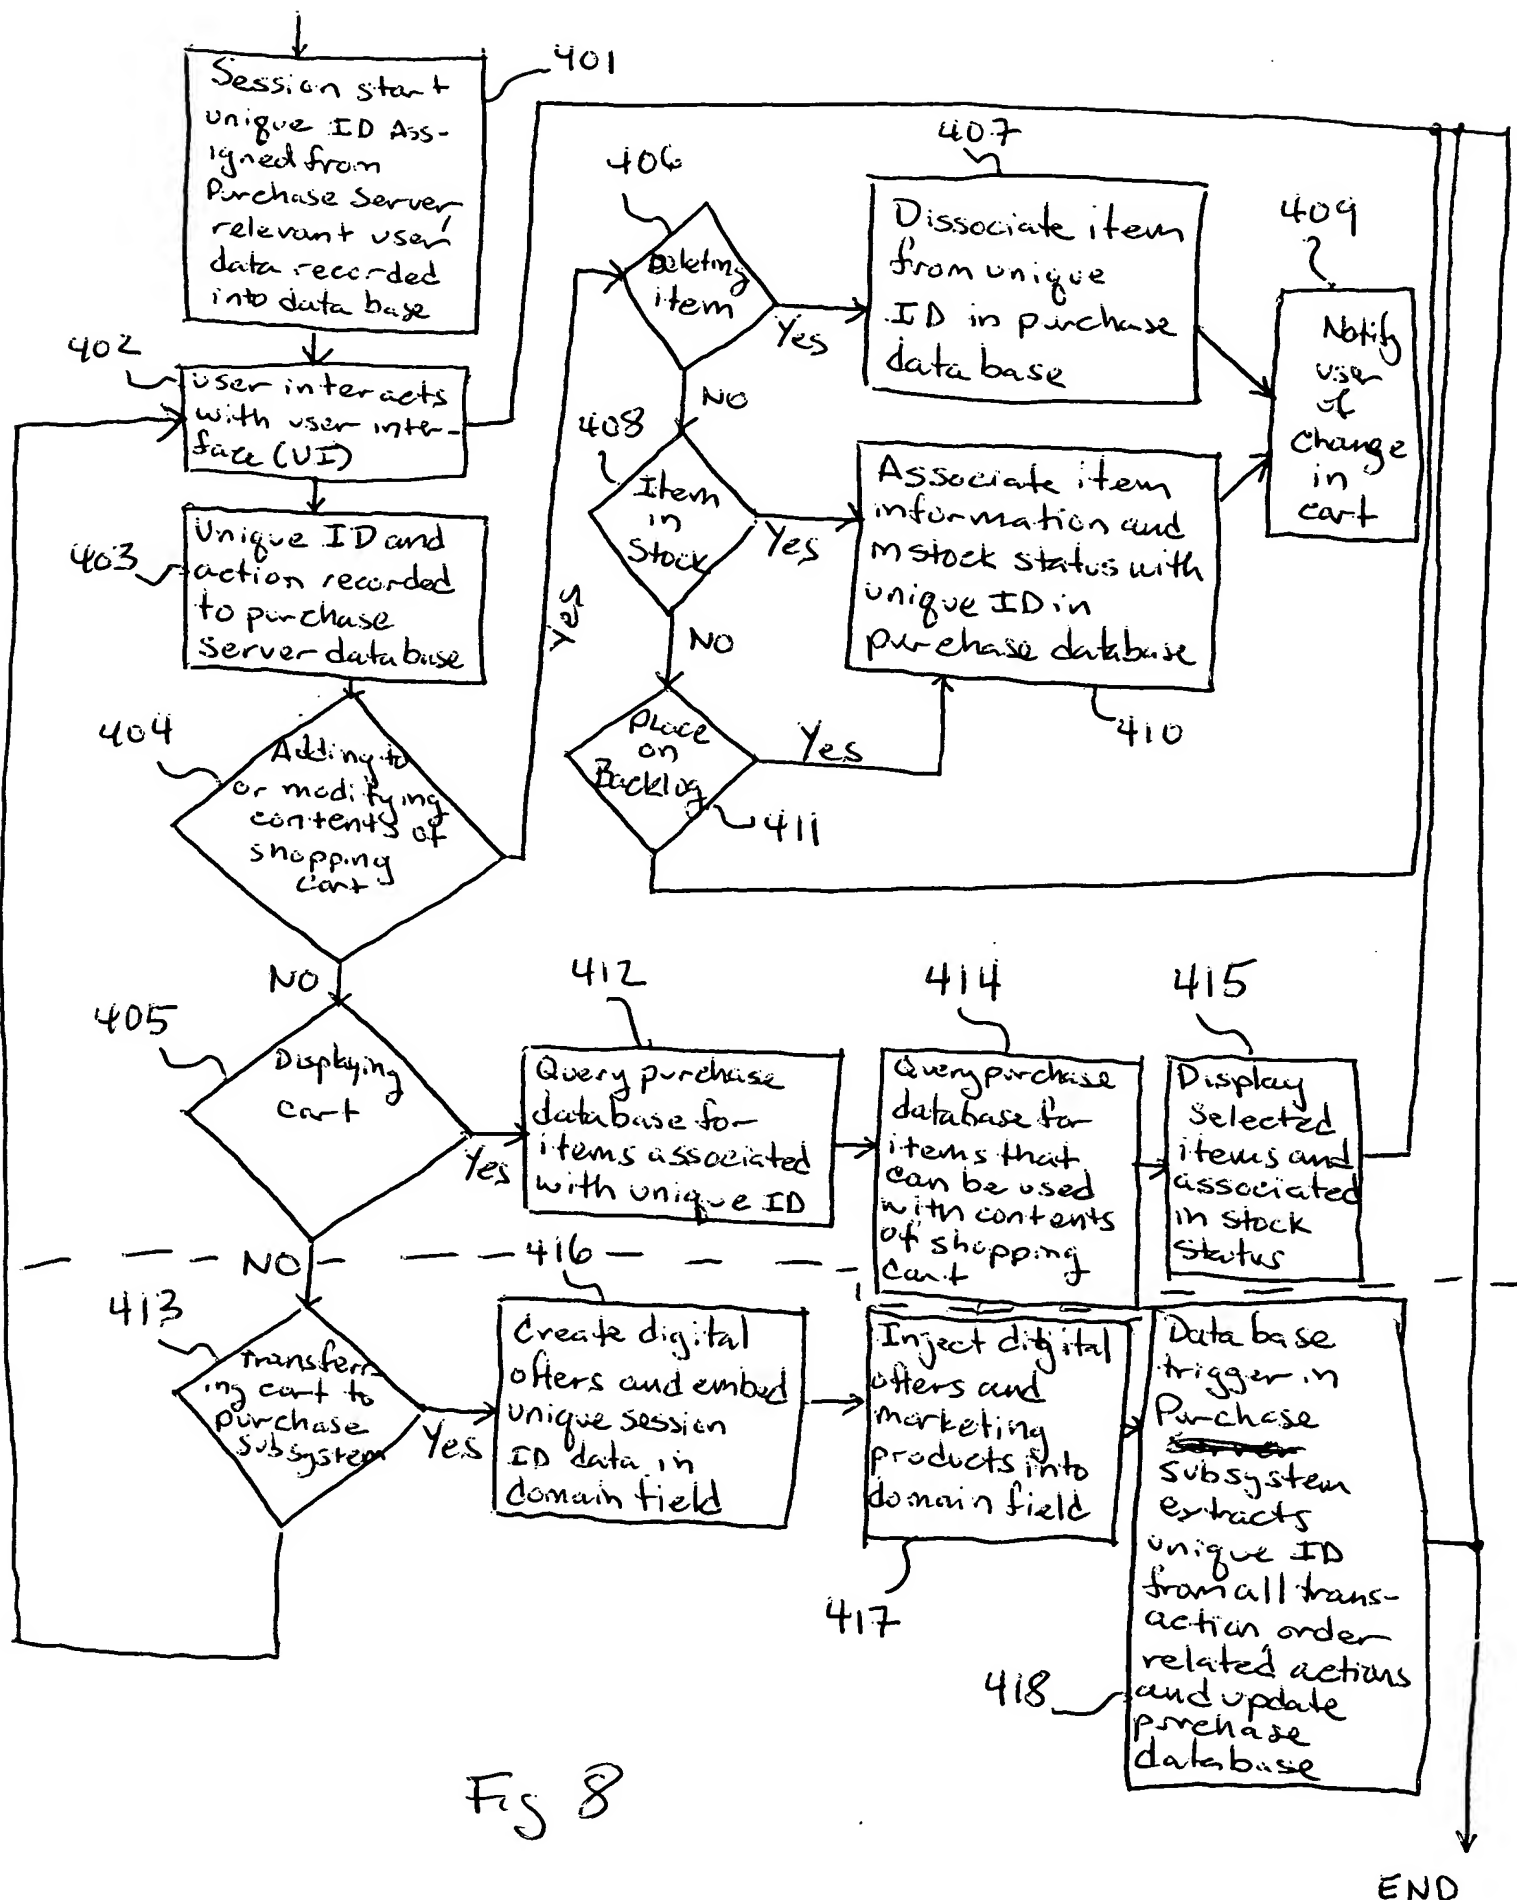 401
Session start
unique ID Ass-
igned from
Purchase Server,
relevant user
data recorded
into data base
402
user interacts
with user inter-
face (UI)
403
Unique ID and
action recorded
to purchase
Server database
404
Adding to
or modifying
contents of
shopping
cart
Yes
NO
406
Deleting
item
Yes
NO
407
Dissociate item
from unique
ID in purchase
data base
408
Item
in
Stock
Yes
NO
409
Notify
user
of
Change
in
cart
Associate item
information and
instock status with
unique ID in
purchase database
410
Place
on
Backlog
Yes
411
405
Displaying
cart
Yes
NO
412
Query purchase
database for
items associated
with unique ID
414
Query purchase
database for
items that
can be used
with contents
of shopping
cart
415
Display
selected
items and
associated
in stock
status
413
Transferr-
ing cart to
purchase
subsystem
Yes
416
Create digital
offers and embed
unique session
ID data in
domain field
Inject digital
offers and
marketing
products into
domain field
417
Data base
trigger in
Purchase
server
subsystem
extracts
unique ID
from all trans-
action order
related actions
and update
purchase
database
418
Fig 8
END